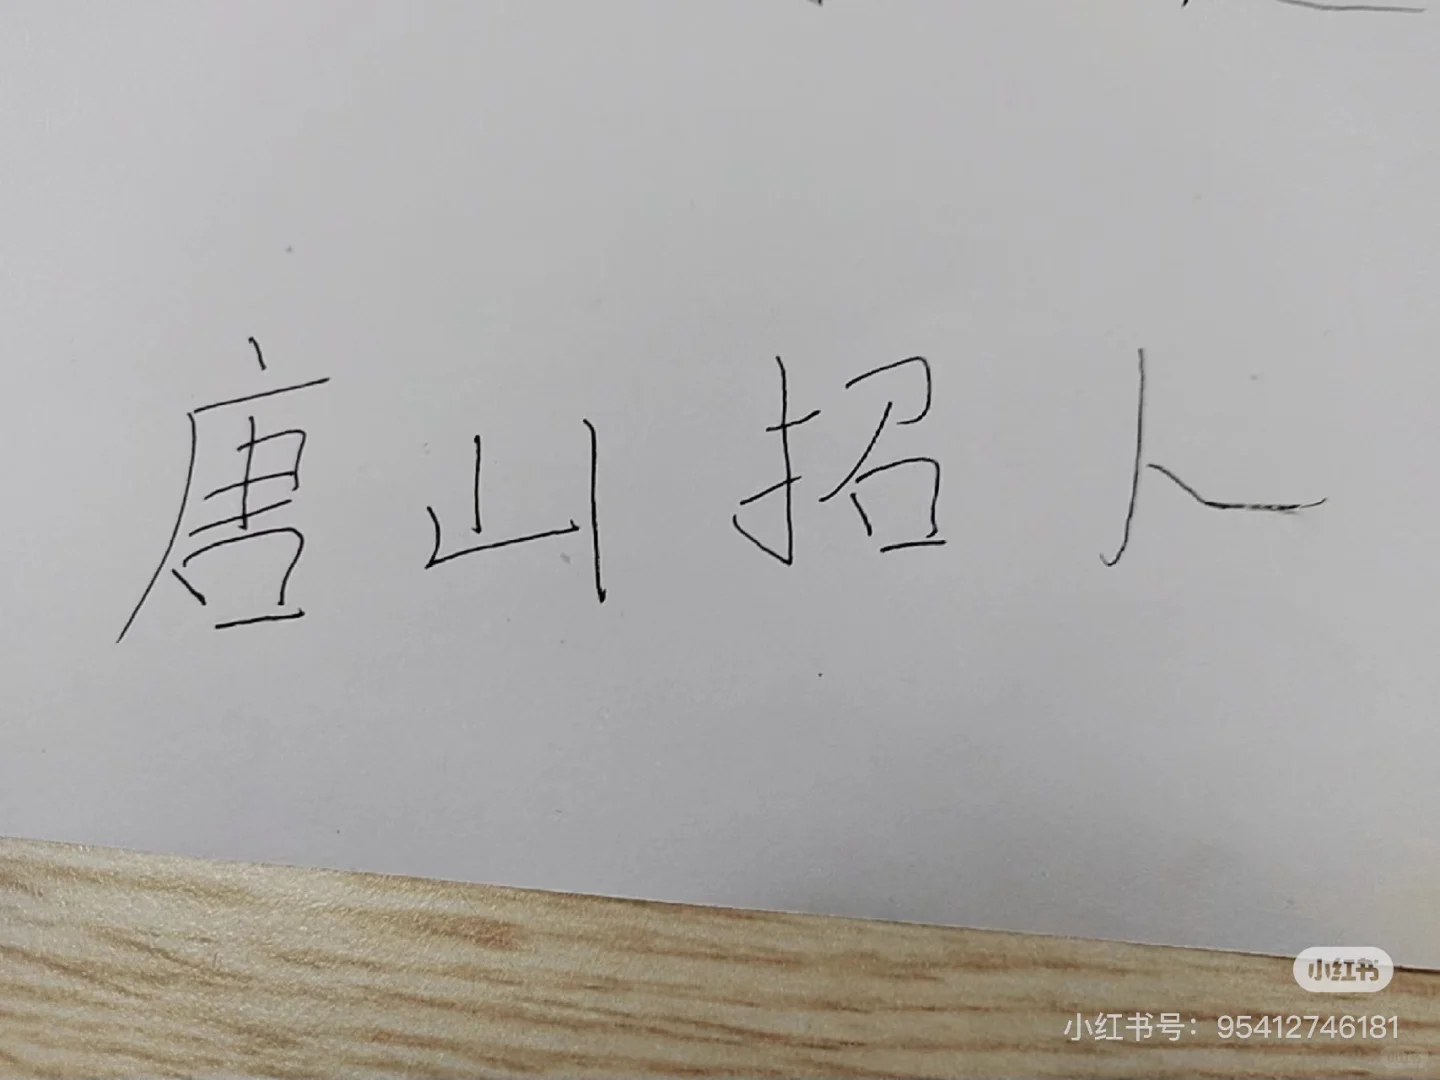 唐山招人
小红书
小红书号：95412746181